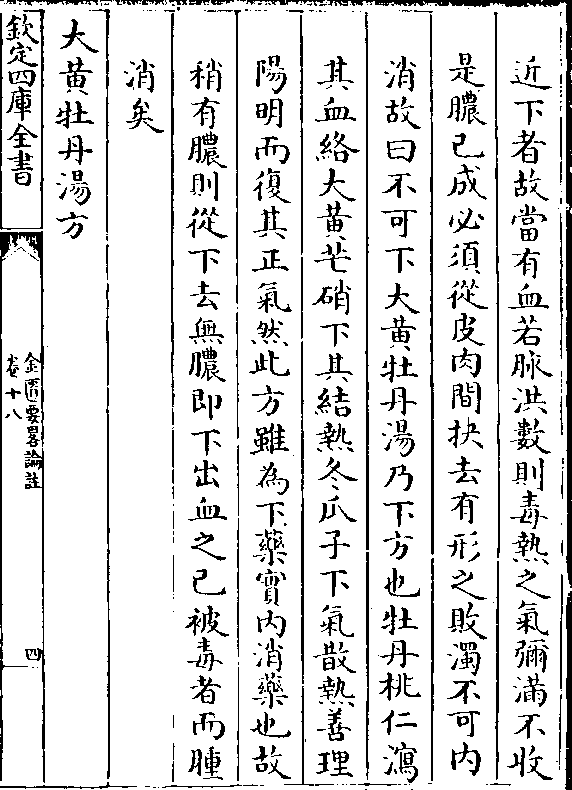 近下者故當有血若脉洪數則毒熱之氣彌滿不收
是膿已成必須從皮肉間抉去有形之敗濁不可内
消故曰不可下大黄牡丹湯乃下方也牡丹桃仁瀉
其血絡大黄芒硝下其結熱冬瓜子下氣散熱善理
陽明而復其正氣然此方雖為下藥實内消藥也故
稍有膿則從下去無膿即下出血之已被毒者而腫
消矣
大黄牡丹湯方
欽定四庫全書
金匱要畧論註
卷十八
四